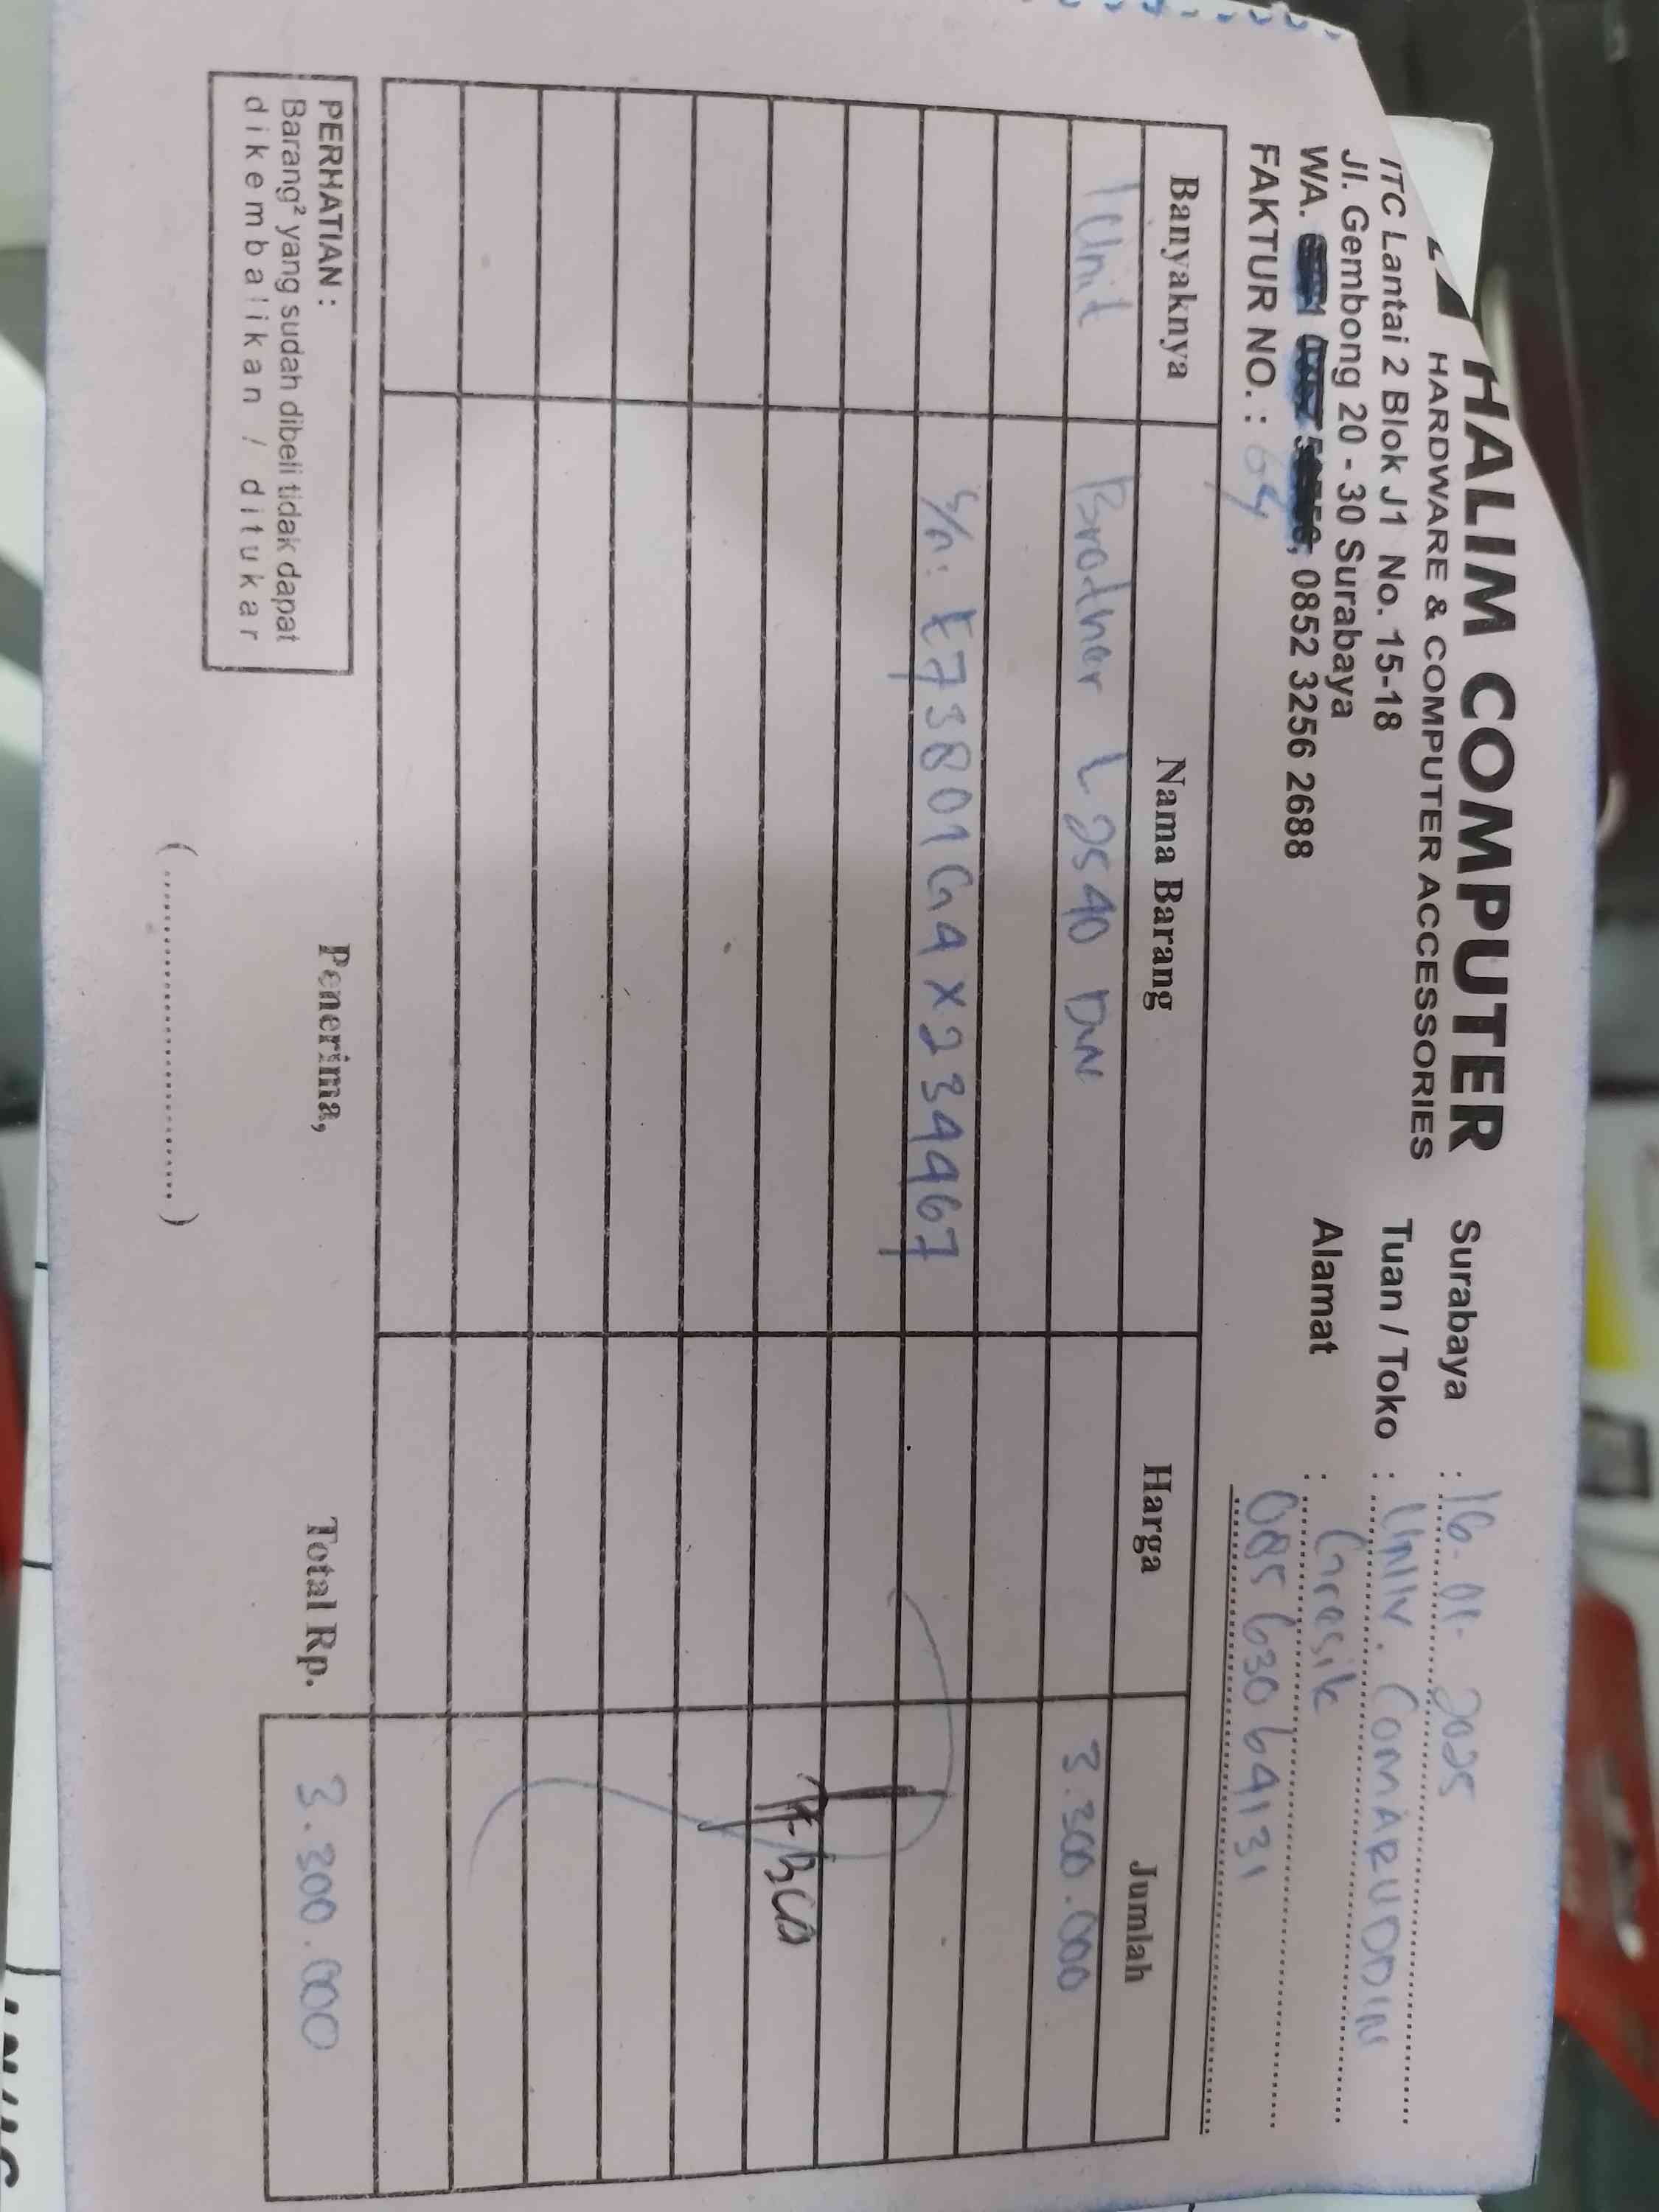 HALIM COMPUTER
HARDWARE & COMPUTER ACCESSORIES
ITC Lantai 2 Blok J1 No. 15-18
Jl. Gembong 20 - 30 Surabaya
WA. 0852 3256 2688
FAKTUR NO. : 64
Surabaya : 16-01-2025
Tuan / Toko : Univ. COMARUDDIN
Alamat : Gresik
085 630 64131
Banyaknya Nama Barang Harga Jumlah
1 Unit Brother L 2540 DW 3.300.000
S/n: E73801G4X234467
TF BCA
PERHATIAN :
Barang² yang sudah dibeli tidak dapat
dikembalikan / ditukar
Penerima,
(..............................)
Total Rp. 3.300.000